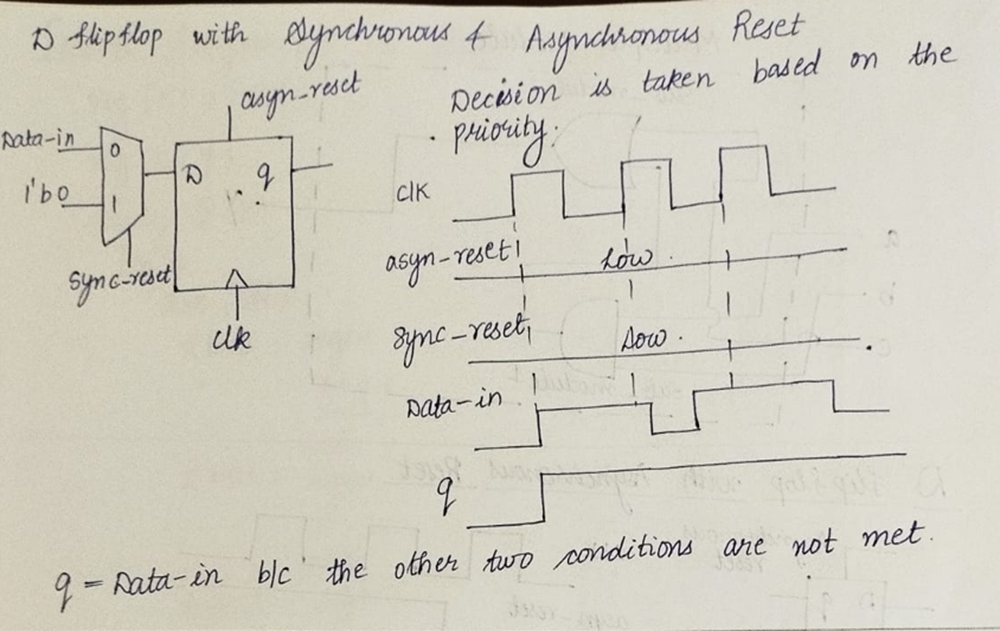 D flipflop with Synchronous & Asynchronous Reset
asyn-reset
Data-in
0
1'b0
1
D
q
sync-reset
clk
Decision is taken based on the
priority.
clk
asyn-reset
Low
sync-reset
Low.
Data-in
q
q = Data-in b/c the other two conditions are not met.